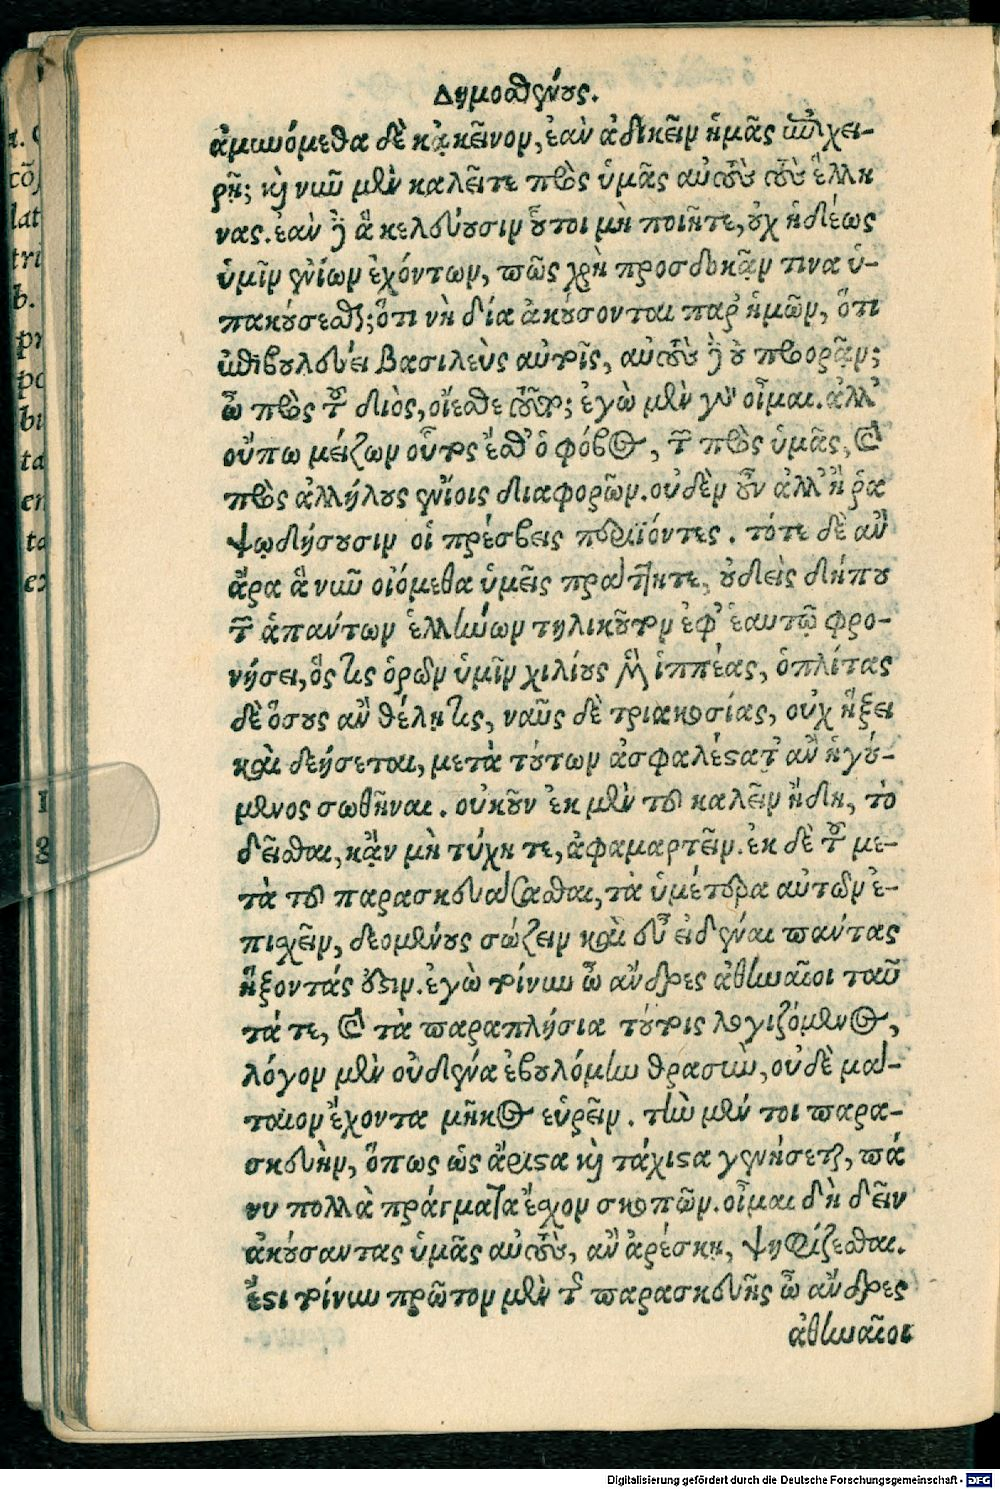 Δημοσθένους.
ἀμυνόμεθα δὲ κᾀκεῖνον, ἐὰν ἀδικεῖν ἡμᾶς ἐπιχει-
ρῇ; καὶ νῦν μὲν καλεῖτε πρὸς ὑμᾶς αὐτοὺς τοὺς ἕλλη
νας. ἐὰν δ' ἃ κελεύουσιν οὗτοι μὴ ποιῆτε, οὐχ ἡδέως
ὑμῖν ἐνίων ἐχόντων, πῶς χρὴ προσδοκᾷν τινα ὑ-
πακούσεσθαι; ὅτι νὴ δία ἀκούσονται παρ' ἡμῶν, ὅτι
ἐπιβουλεύει βασιλεὺς αὐτοῖς, αὐτοὺς δ' οὐ προορᾷν;
ὦ πρὸς τοῦ διὸς, οἴεσθε τοῦτο; ἐγὼ μὲν γὰρ οἶμαι. ἀλλ'
οὔπω μείζων οὗτός ἔσθ' ὁ φόβος, τῶν πρὸς ὑμᾶς, καὶ
πρὸς ἀλλήλους ἐνίοις διαφορῶν. οὐδὲν οὖν ἀλλ' ἢ ῥα
ψῳδήσουσιν οἱ πρέσβεις περιϊόντες. τότε δὲ ἂν
ἄρα ἃ νῦν οἰόμεθα ὑμεῖς πράττητε, οὐδεὶς δήπου
τῶν ἁπάντων ἑλλήνων τηλικοῦτον ἐφ' ἑαυτῷ φρο-
νήσει, ὅς τις ὁρῶν ὑμῖν χιλίους μὲν ἱππέας, ὁπλίτας
δὲ ὅσους ἂν θέλῃ τις, ναῦς δὲ τριακοσίας, οὐχ ἥξει
καὶ δεήσεται, μετὰ τούτων ἀσφαλέστατ' ἂν ἡγού-
μενος σωθῆναι. οὐκοῦν ἐκ μὲν τοῦ καλεῖν ἤδη, τὸ
δεῖσθαι, κᾂν μὴ τύχητε, ἀφαμαρτεῖν. ἐκ δὲ τοῦ με-
τὰ τοῦ παρασκευάσασθαι, τὰ ὑμέτερα αὐτῶν ἐ-
πισχεῖν, δεομένους σώζειν καὶ εὖ εἰδέναι πάντας
ἥξοντάς ἐστιν. ἐγὼ τοίνυν ὦ ἄνδρες ἀθηναῖοι ταῦ
τά τε, καὶ τὰ παραπλήσια τούτοις λογιζόμενος,
λόγον μὲν οὐδένα ἐβουλόμην θρασὺν, οὐδὲ μά-
ταιον ἔχοντα μῆκος εὑρεῖν. τὴν μέν τοι παρα-
σκευὴν, ὅπως ὡς ἄριστα καὶ τάχιστα γενήσεται, πά
νυ πολλὰ πράγματα ἔσχον σκοπῶν. οἶμαι δὴ δεῖν
ἀκούσαντας ὑμᾶς αὐτοὺς, ἂν ἀρέσκῃ, ψηφίζεσθαι.
ἔστι τοίνυν πρῶτον μὲν τῆς παρασκευῆς ὦ ἄνδρες
ἀθηναῖοι
Digitalisierung gefördert durch die Deutsche Forschungsgemeinschaft - DFG